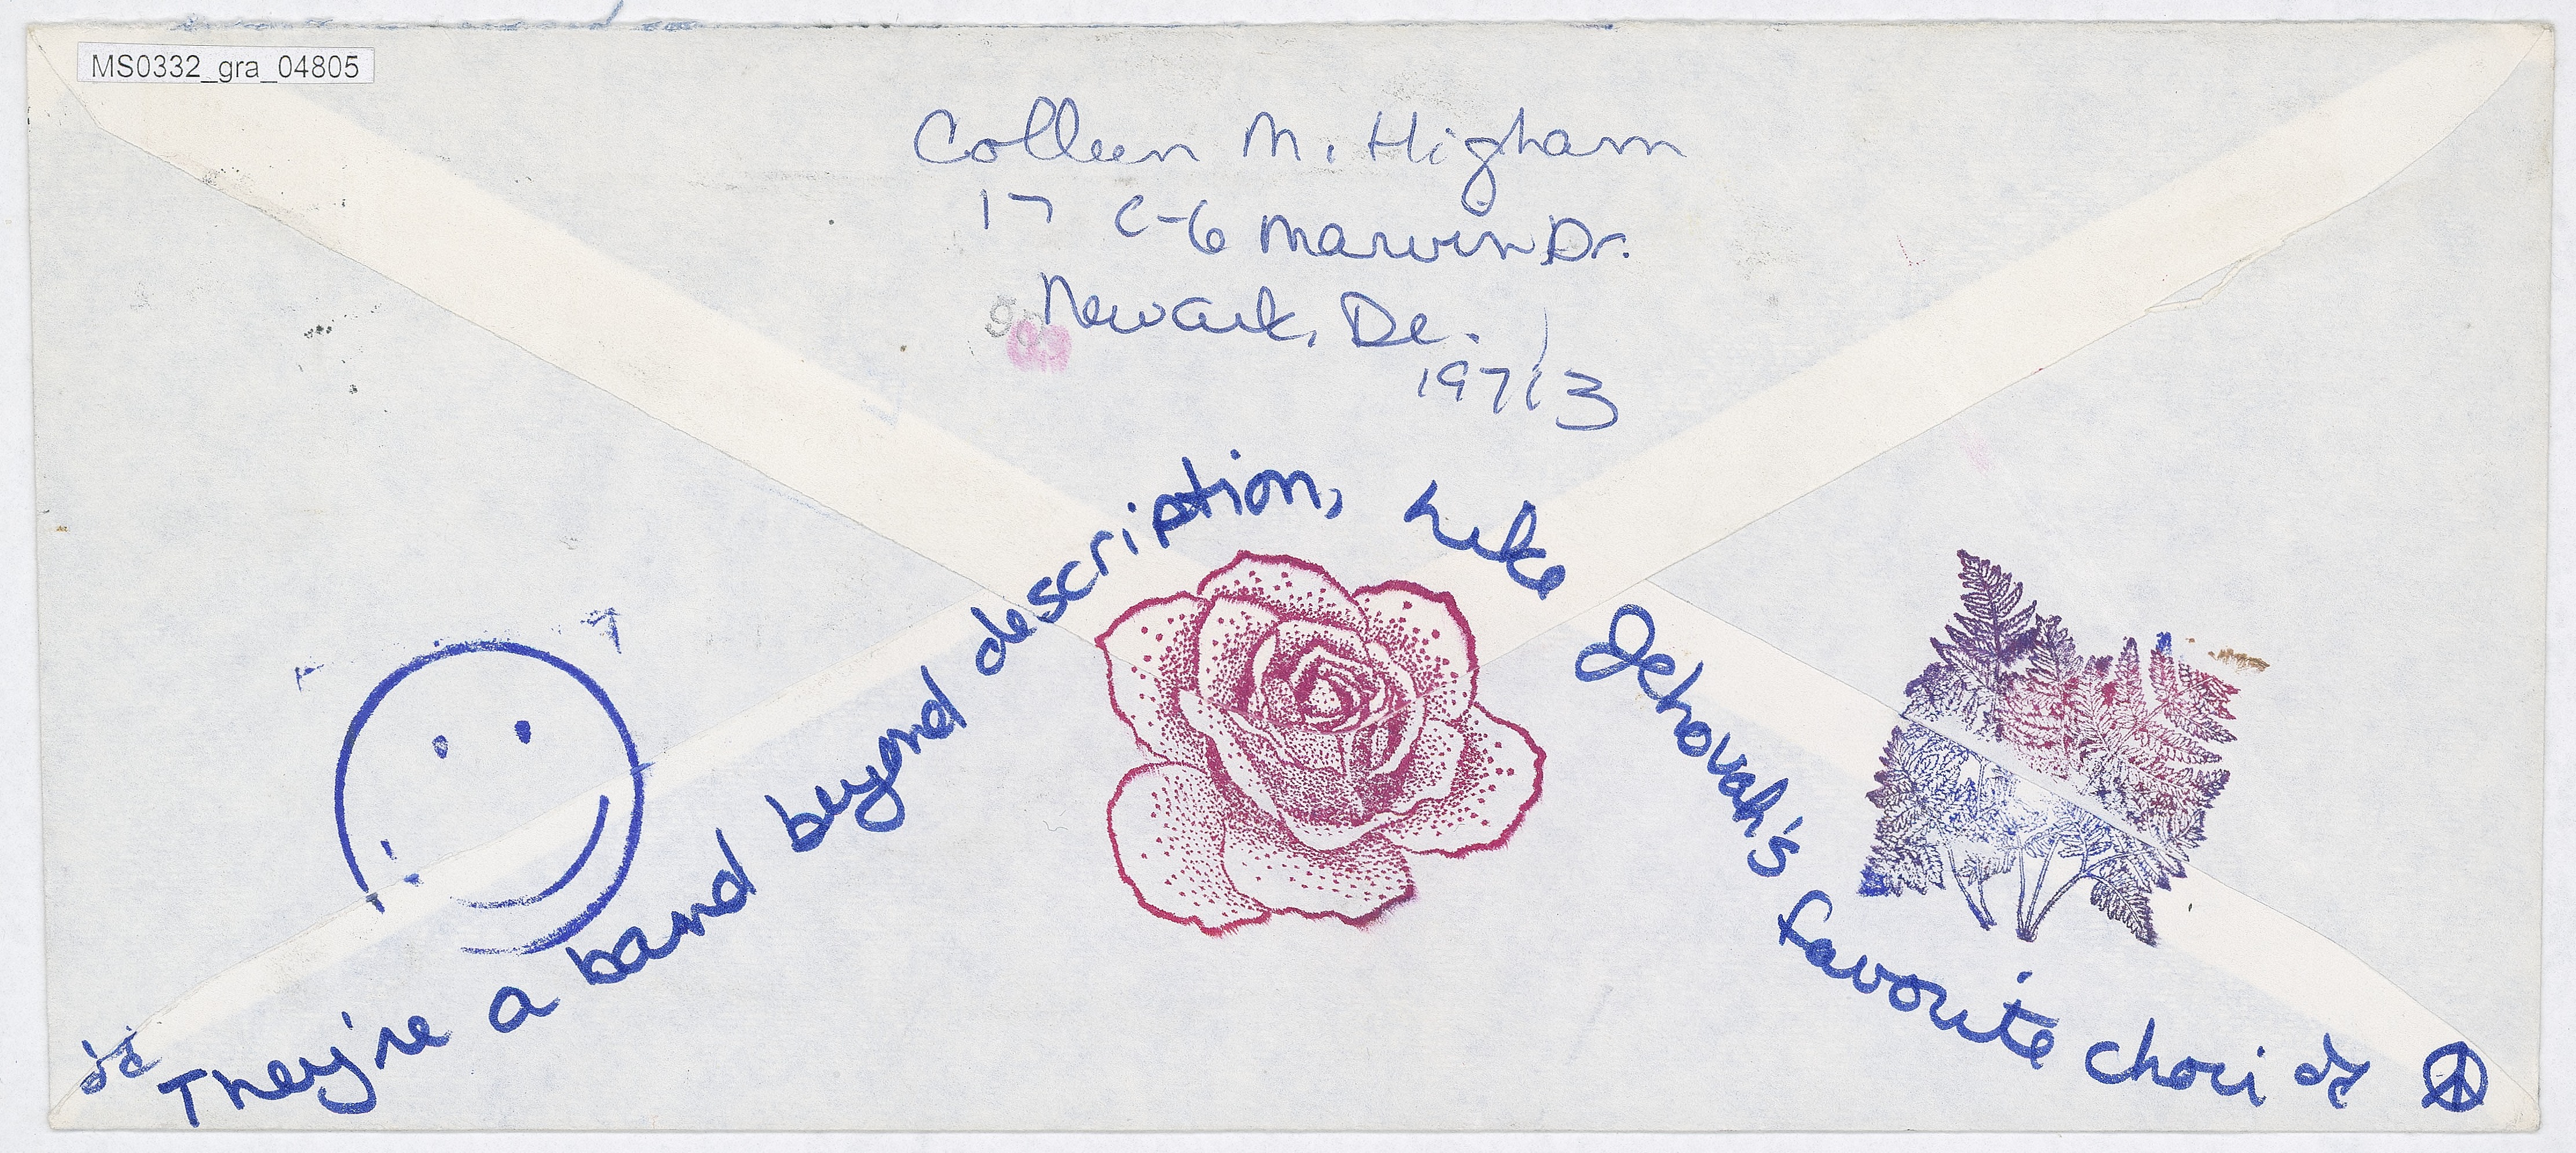 MS0332_gra_04805
Colleen M. Higham
17 C-6 Marvin Dr.
Newark, De.
19713
They're a band beyond description, Like Jehovah's favorite choir